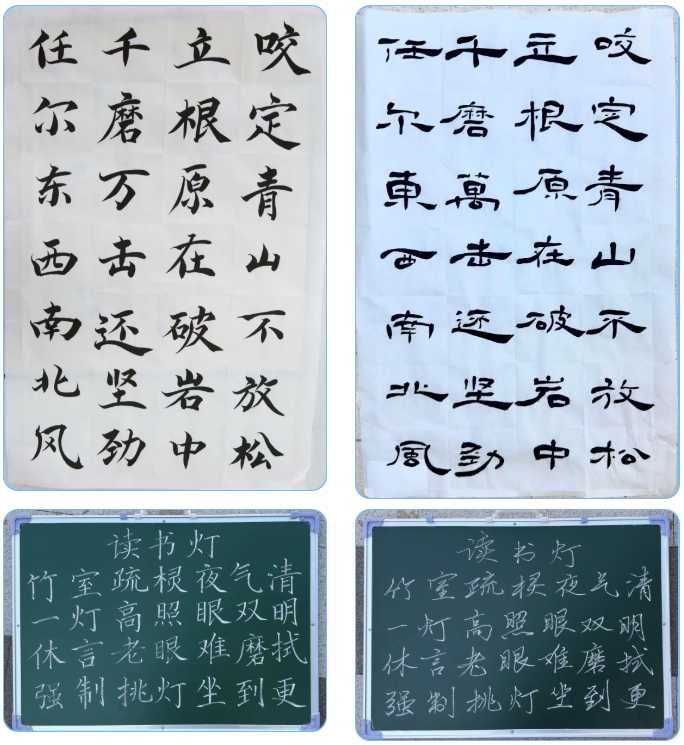 咬定青山不放松
立根原在破岩中
千磨万击还坚劲
任尔东西南北风
咬定青山不放松
立根原在破岩中
千磨萬击还坚劲
任尔東西南北風
读书灯
竹室疏棂夜气清
一灯高照眼双明
休言老眼难磨拭
强制挑灯坐到更
读书灯
竹室疏棂夜气清
一灯高照眼双明
休言老眼难磨拭
强制挑灯坐到更